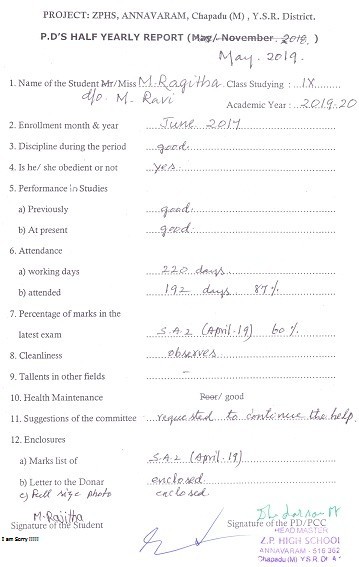 PROJECT: ZPHS, ANNAVARAM, Chapadu (M) , Y.S.R. District.
P.D'S HALF YEARLY REPORT (May/November 2018, )
May. 2019.
1. Name of the Student Mr/Miss M. Ragitha Class Studying : IX
d/o M. Ravi
Academic Year : 2019-20
2. Enrollment month & year June 2017
3. Discipline during the period good
4. Is he/ she obedient or not yes.
5. Performance in Studies
a) Previously good.
b) At present good
6. Attendance
a) working days 220 days.
b) attended 192 days 87%
7. Percentage of marks in the
latest exam S.A.2 (April-19) 60%
8. Cleanliness observes
9. Tallents in other fields -
10. Health Maintenance Poor/ good
11. Suggestions of the committee requested to continue the help.
12. Enclosures
a) Marks list of S.A.2 (April.19)
b) Letter to the Donar enclosed.
c) Full size photo enclosed.
M. Rajitha
Signature of the Student
Signature of the PD/PCC
HEADMASTER
Z.P. HIGH SCHOOL
ANNAVARAM - 516 362
Chapadu (M) Y.S.R Dt A
I am Sorry !!!!!